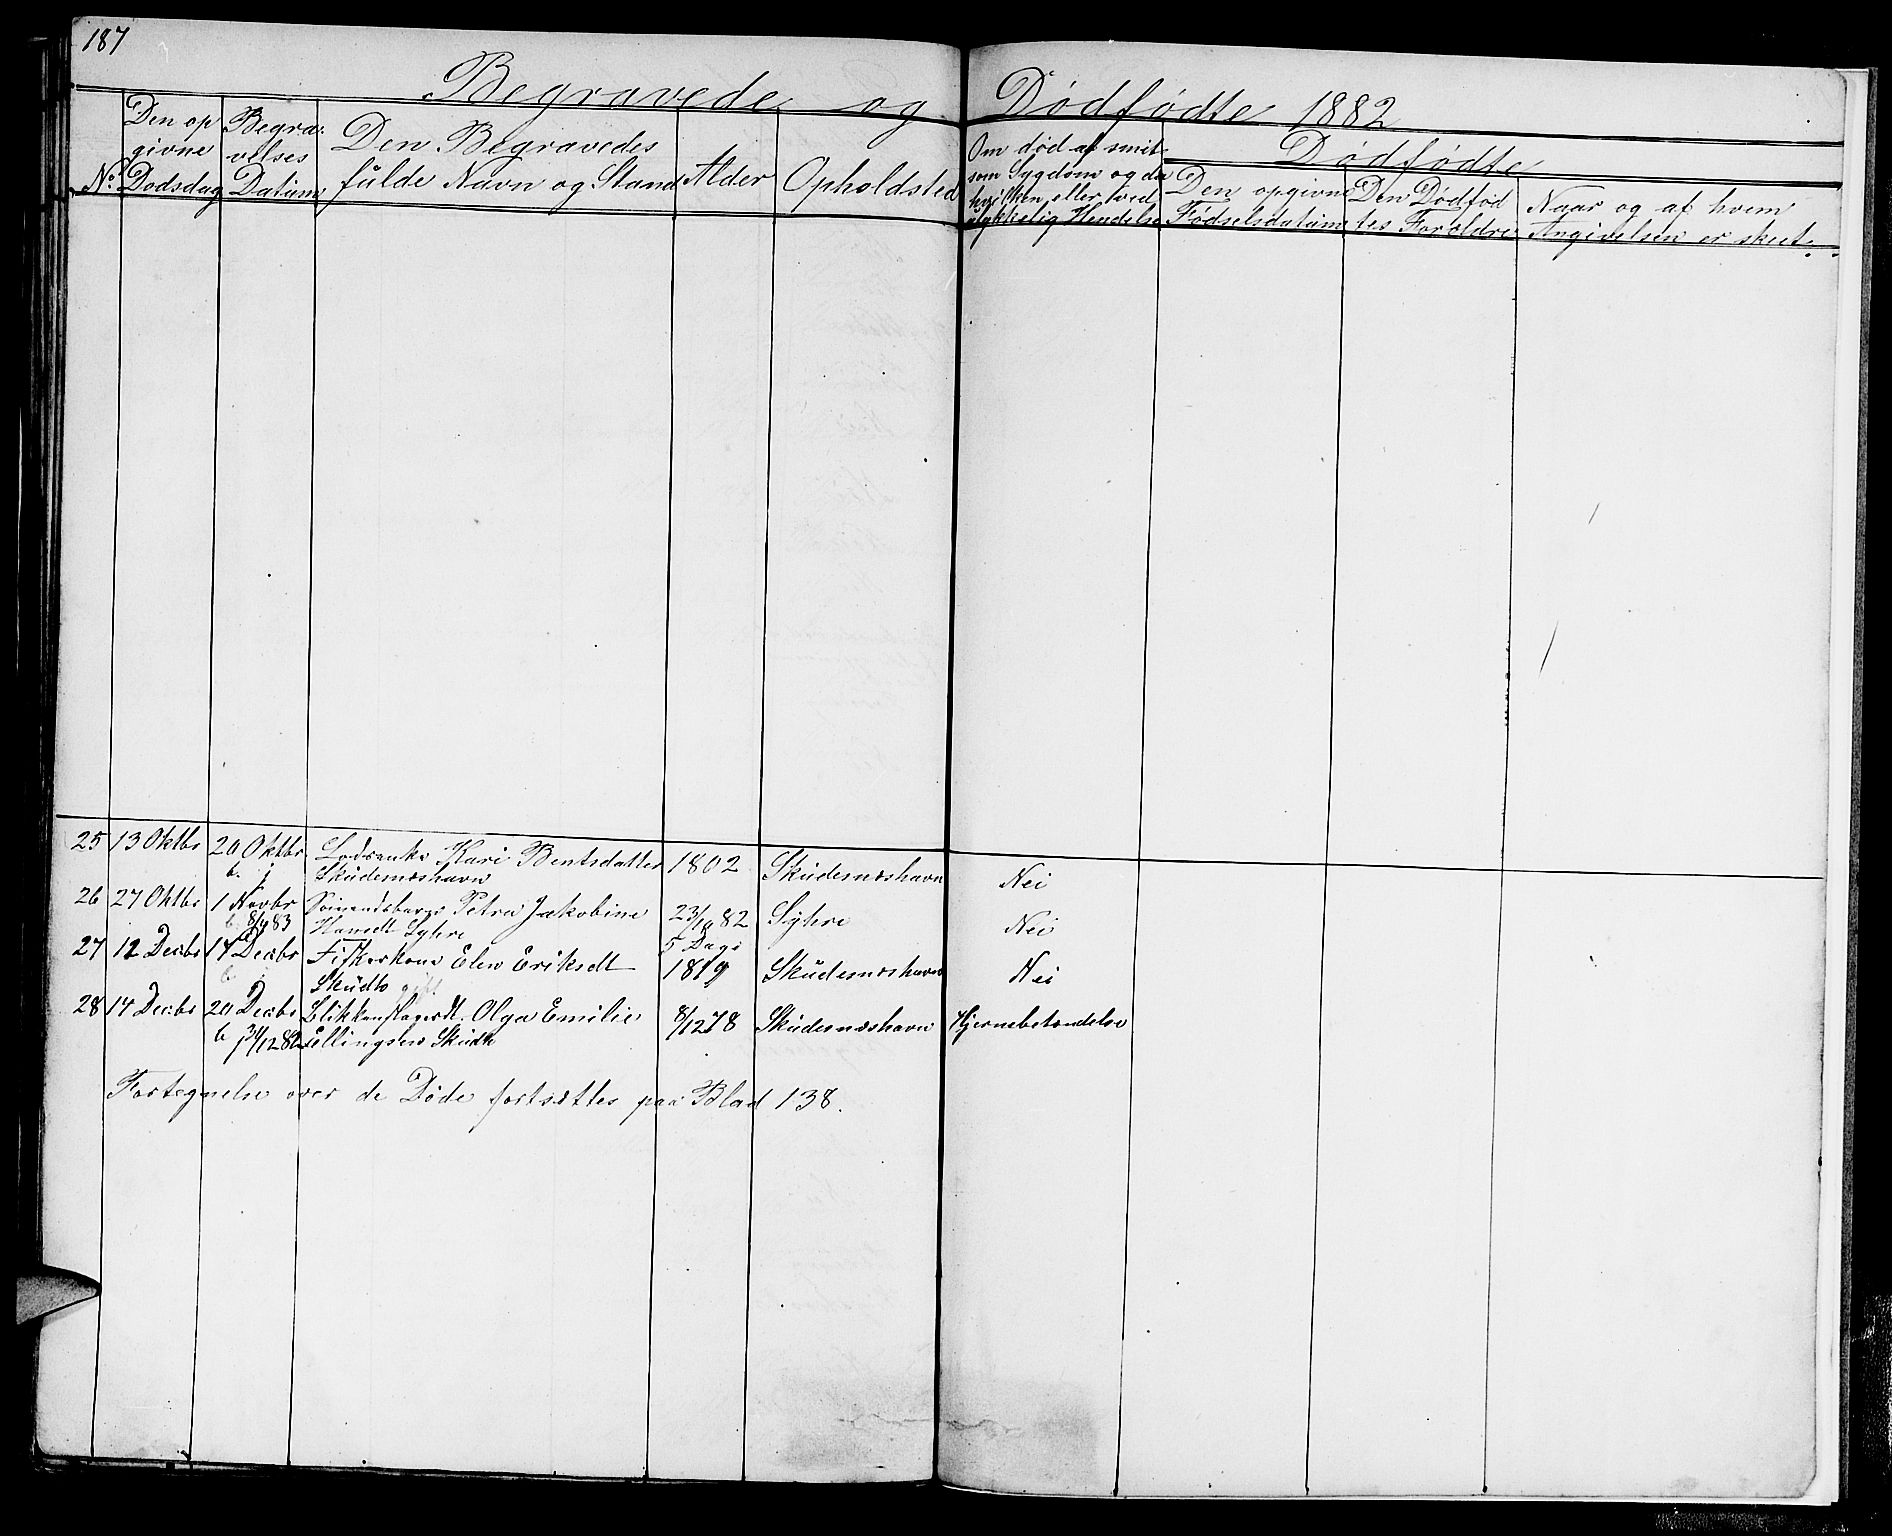 187
Begravede og Dødfødte 1882
Den op Begra- Den Begravedes Om død af smit-
givne velses Dødfødte
No. Dødsdag Datum fulde Navn og Stand Alder Opholdsted som Sygdom og da Den opgivne Den Dødfød Naar og af hvem
hvilken, eller ved
Hendelse Fødselsdatum tes Forældre Angivelsen er skeet.
25 13 Oktbr 20 Oktbr Lodsenke Kari Bentsdatter 1802 Skudesneshavn Nei
Skudesneshavn
26 27 Oktbr 1 Novbr Petra Jakobine 23/10 82 Syhre Nei
b. 8/4 83 Hansdt Syhre 5 Dage
27 12 Decbr 17 Decbr Fiskerkone Elen Eriksdt 1819 Skudesneshavn Nei
Skudh gift
28 14 Decbr 20 Decbr Blikkenslagerdt. Olga Emilie 8/12 78 Skudesneshavn Hjernebetændelse
b 31/12 82 Ellingsen Skudh
Fortegnelse over de Døde fortsættes paa Blad 138.